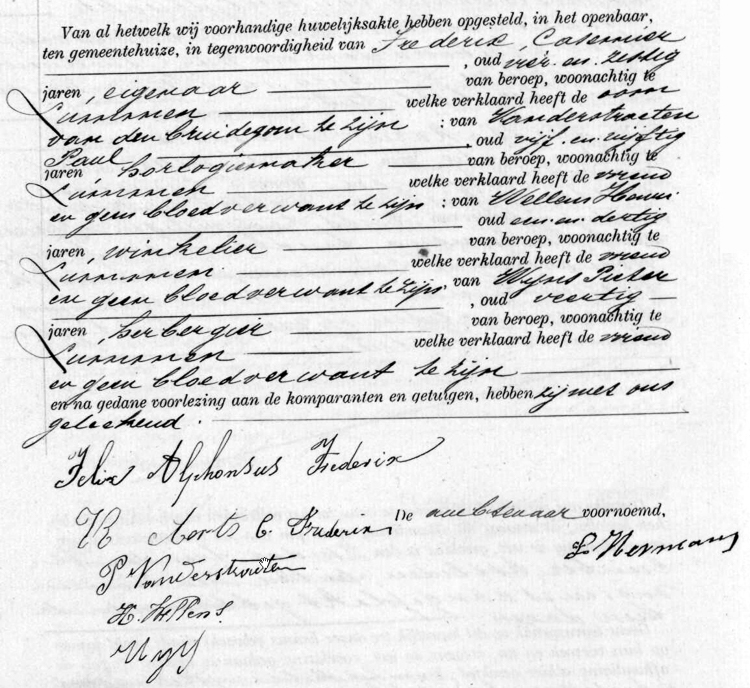 Van al hetwelk wij voorhandige huwelijksakte hebben opgesteld, in het openbaar,
ten gemeentehuize, in tegenwoordigheid van Frederix, Casemier
, oud vier en zestig
jaren, eigenaar van beroep, woonachtig te
Lummen welke verklaard heeft de oom
van den bruidegom te zijn : van Vanderstraeten
Paul , oud vijf en vijftig
jaren horlogiemaker van beroep, woonachtig te
Lummen welke verklaard heeft de vriend
en geen bloedverwant te zijn : van Wellens Henri
oud een en dertig
jaren, winkelier van beroep, woonachtig te
Lummen welke verklaard heeft de vriend
en geen bloedverwant te zijn van Wijns Pieter
, oud veertig
jaren, herbergier van beroep, woonachtig te
Lummen welke verklaard heeft de vriend
en geen bloedverwant te zijn
en na gedane voorlezing aan de komparanten en getuigen, hebben zij met ons
geteekend.
Felix Alphonsus Frederix
Aerts C Frederix
De ambtenaar voornoemd,
P Vanderstraeten
L Hermans
H. Wellens